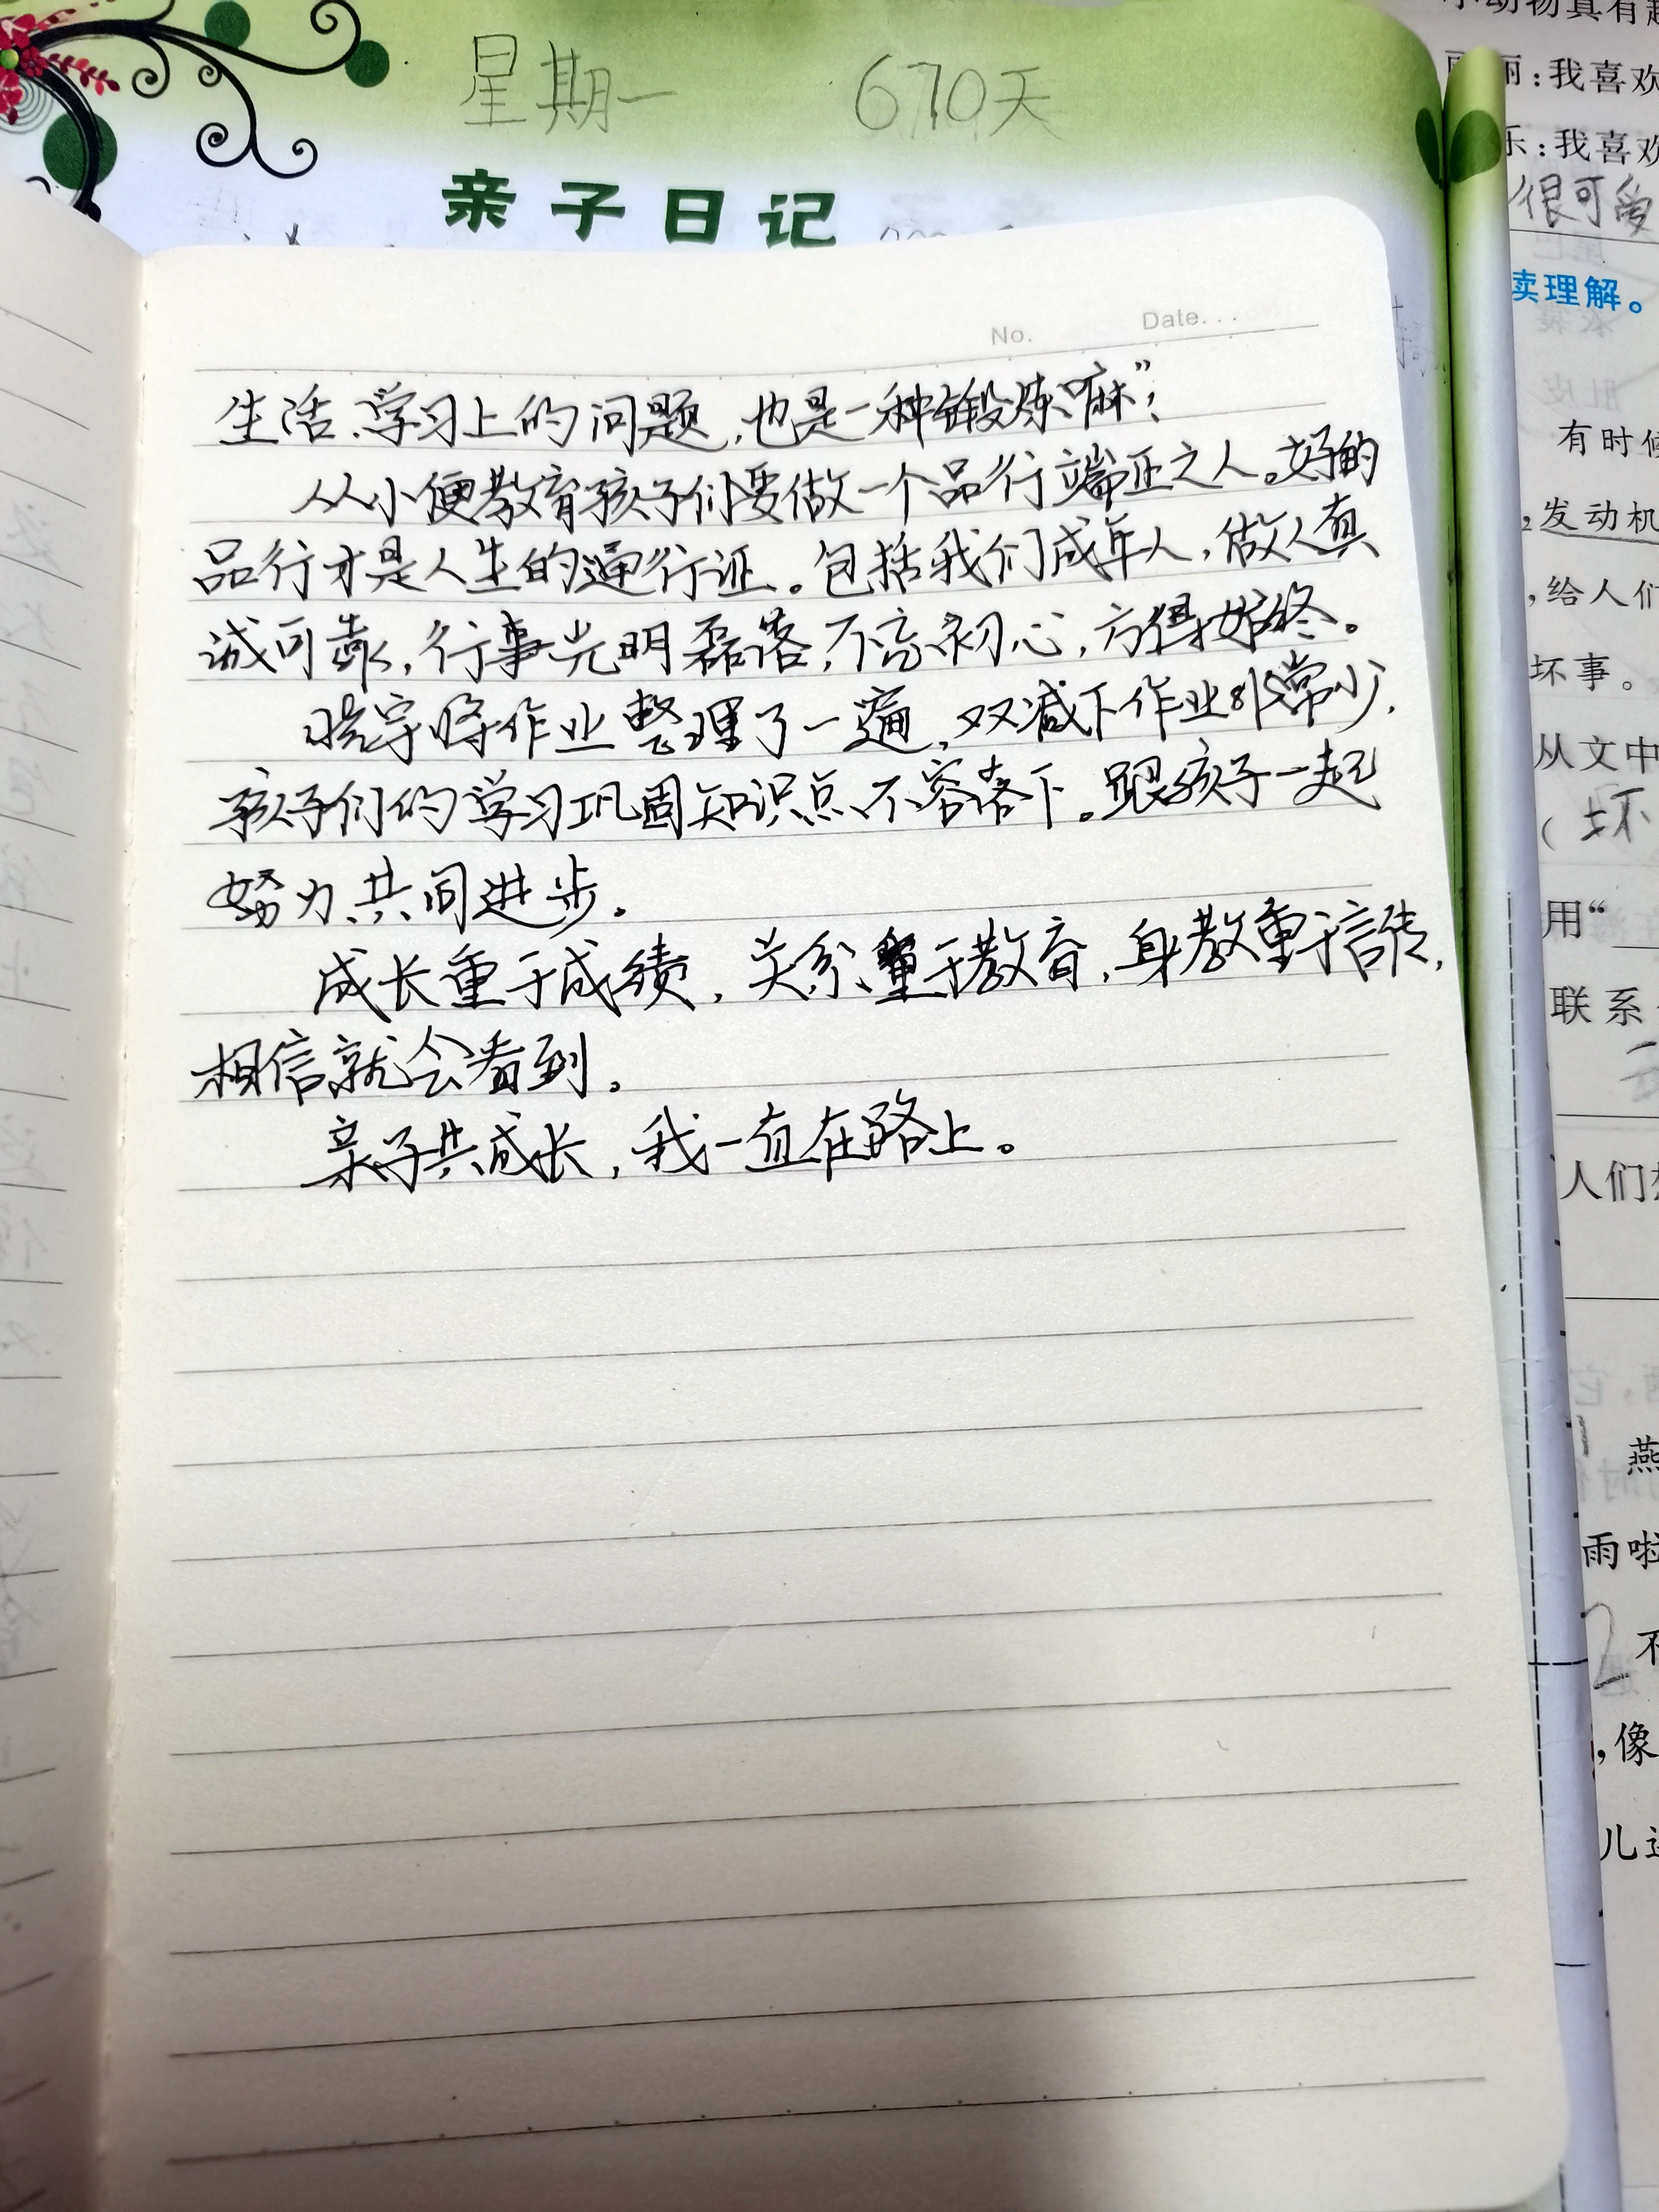 星期一 670天
亲子日记
No. Date...
生活、学习上的问题,也是一种锻炼嘛”;
从小便教育孩子们要做一个品行端正之人。好的
品行才是人生的通行证。包括我们成年人,做人真
诚可靠,行事光明磊落,不忘初心,方得始终。
晓宇将作业整理了一遍,双减下作业非常少,
孩子们的学习巩固知识点不容落下。跟孩子一起
努力、共同进步。
成长重于成绩,关系重于教育,身教重于言传,
相信就会看到。
亲子共成长,我一直在路上。
小动物真有趣
丽:我喜欢
乐:我喜欢
很可爱
读理解。
有时候
发动机
,给人们
坏事。
从文中
(坏
用“
联系
人们
燕
雨啦
2 不
,像
儿